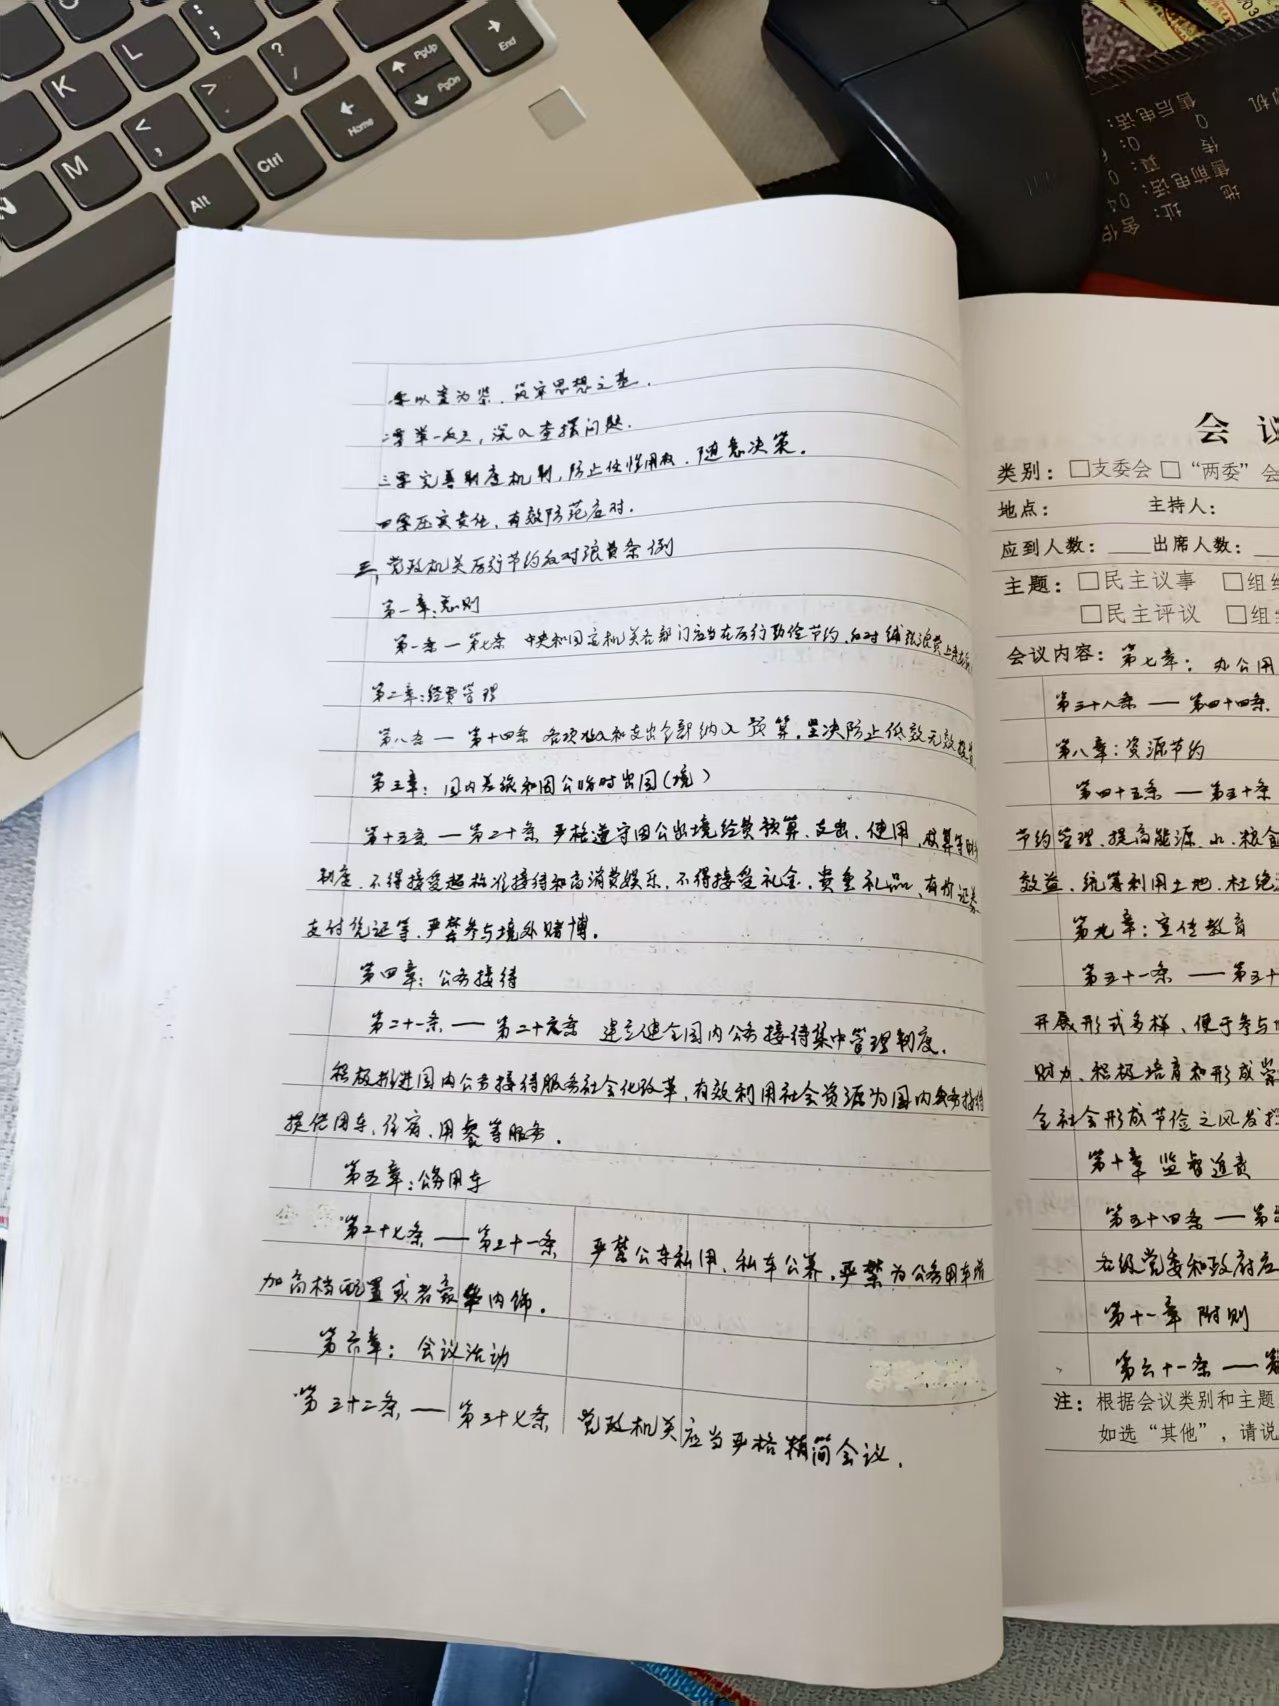 K
L
:
;
"
'
→
End
M
<
,
>
.
?
/
↑
PgUp
↓
PgDn
←
Home
Alt
Ctrl
售后电话:
售前电话:
传真:
地址:
一要以案为鉴，筑牢思想之基．
二要举一反三，深入查摆问题．
三要完善制度机制，防止任性用权．随意决策。
四要压实责任，有效防范应对．
三、党政机关厉行节约反对浪费条例
第一章：总则
第一条—第七条 中央和国家机关各部门应当在厉行勤俭节约．反对铺张浪费上
第二章：经费管理
第八条—第十四条 各项收入和支出全部纳入预算．坚决防止低效无效
第三章：国内差旅和因公临时出国（境）
第十五条—第二十条 严格遵守因公出境经费预算、支出、使用、核算等财务
制度．不得接受超标准接待和高消费娱乐，不得接受礼金．贵重礼品、有价证券
支付凭证等．严禁参与境外赌博。
第四章：公务接待
第二十一条—第二十六条 建立健全国内公务接待集中管理制度．
积极推进国内公务接待服务社会化改革，有效利用社会资源为国内公务接待
提供用车、住宿、用餐等服务．
第五章：公务用车
第二十七条—第三十一条 严禁公车私用、私车公养，严禁为公务用车增
加高档配置或者豪华内饰．
第六章：会议活动
第三十二条—第三十七条 党政机关应当严格精简会议．
会 议
类别：□支委会 □“两委”会
地点： 主持人：
应到人数：____出席人数：
主题：□民主议事 □组
□民主评议 □组
会议内容：第七章：办公用
第三十八条—第四十四条
第八章：资源节约
第四十五条—第五十条
节约管理．提高能源、水、粮食
效益．统筹利用土地．杜绝
第九章：宣传教育
第五十一条—第五十
开展形式多样、便于参与
财力．积极培育和形成崇
全社会形成节俭之风发挥
第十章 监督追责
第五十四条—第
各级党委和政府应
第十一章 附则
第六十一条—第
注：根据会议类别和主题
如选“其他”，请说